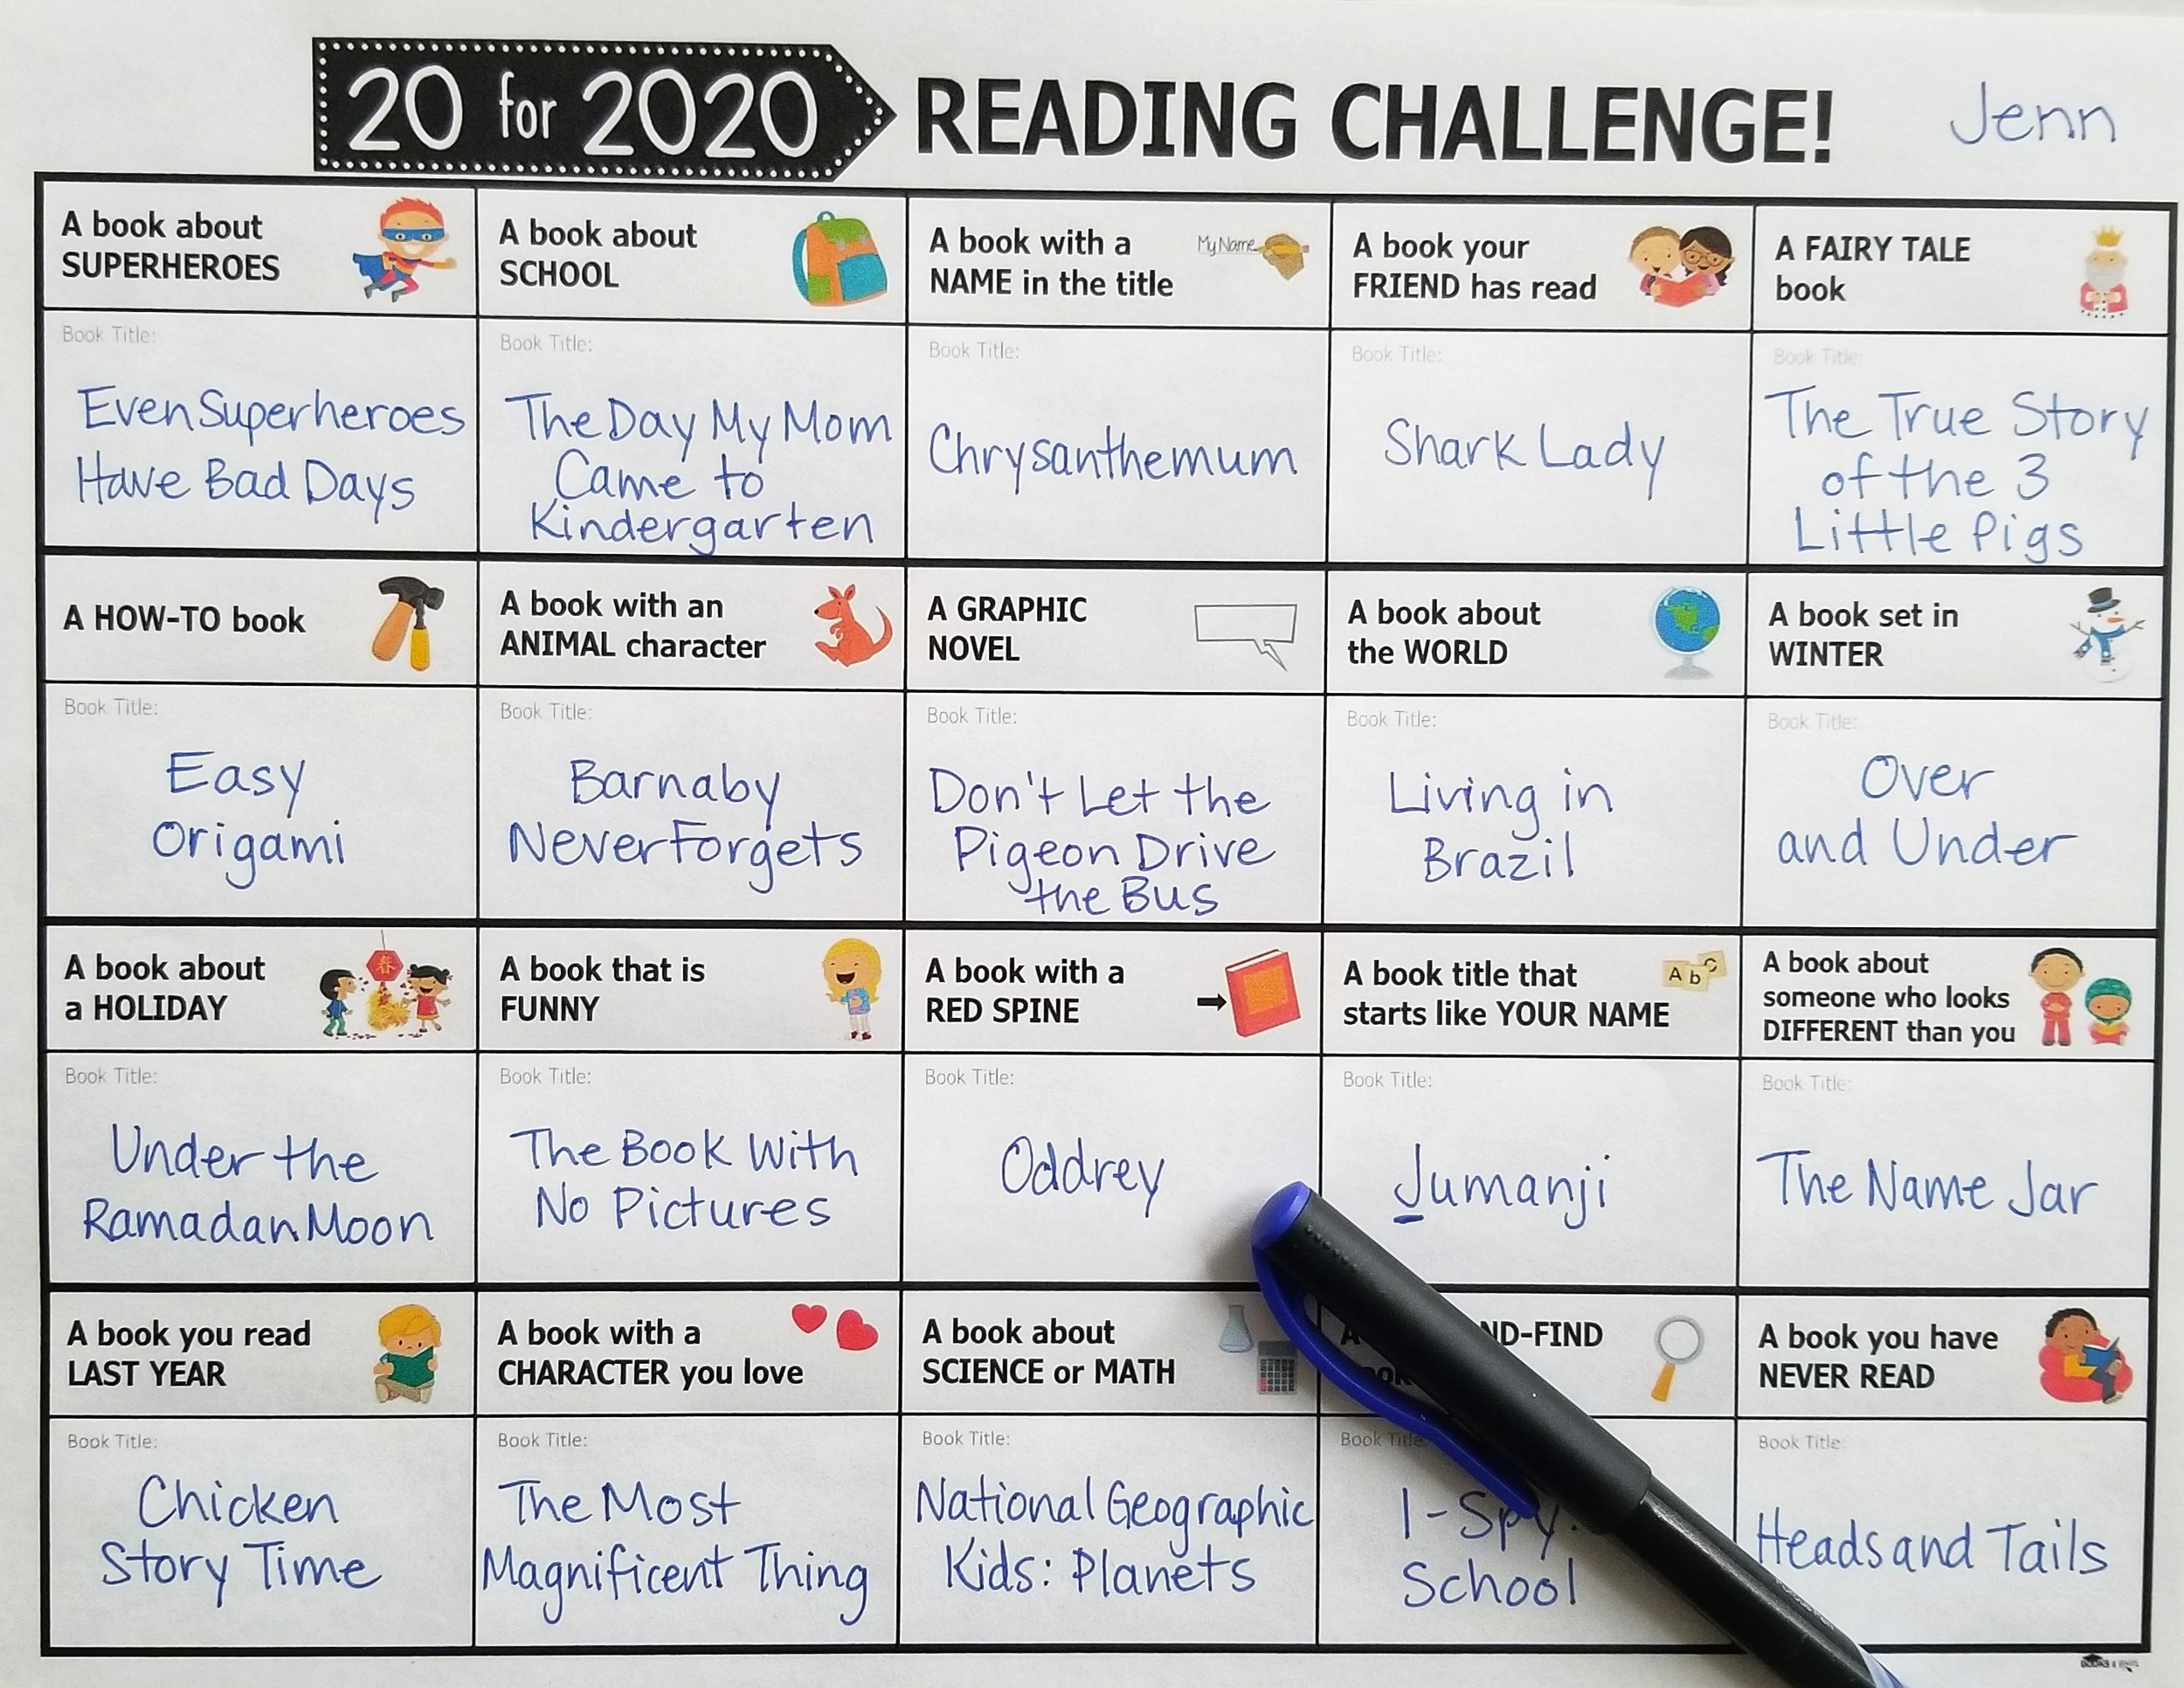 20 for 2020 READING CHALLENGE!
Jenn
A book about
SUPERHEROES
Book Title:
Even Superheroes
Have Bad Days
A book about
SCHOOL
Book Title:
The Day My Mom
Came to
Kindergarten
A book with a
NAME in the title
My Name
Book Title:
Chrysanthemum
A book your
FRIEND has read
Book Title:
Shark Lady
A FAIRY TALE
book
Book Title:
The True Story
of the 3
Little Pigs
A HOW-TO book
Book Title:
Easy
Origami
A book with an
ANIMAL character
Book Title:
Barnaby
Never Forgets
A GRAPHIC
NOVEL
Book Title:
Don't Let the
Pigeon Drive
the Bus
A book about
the WORLD
Book Title:
Living in
Brazil
A book set in
WINTER
Book Title:
Over
and Under
A book about
a HOLIDAY
春
Book Title:
Under the
Ramadan Moon
A book that is
FUNNY
Book Title:
The Book With
No Pictures
A book with a
RED SPINE
Book Title:
Oddrey
A book title that
starts like YOUR NAME
A b C
Book Title:
Jumanji
A book about
someone who looks
DIFFERENT than you
Book Title:
The Name Jar
A book you read
LAST YEAR
Book Title:
Chicken
Story Time
A book with a
CHARACTER you love
Book Title:
The Most
Magnificent Thing
A book about
SCIENCE or MATH
Book Title:
National Geographic
Kids: Planets
ND-FIND
Book Title:
I-Spy:
School
A book you have
NEVER READ
Book Title:
Heads and Tails